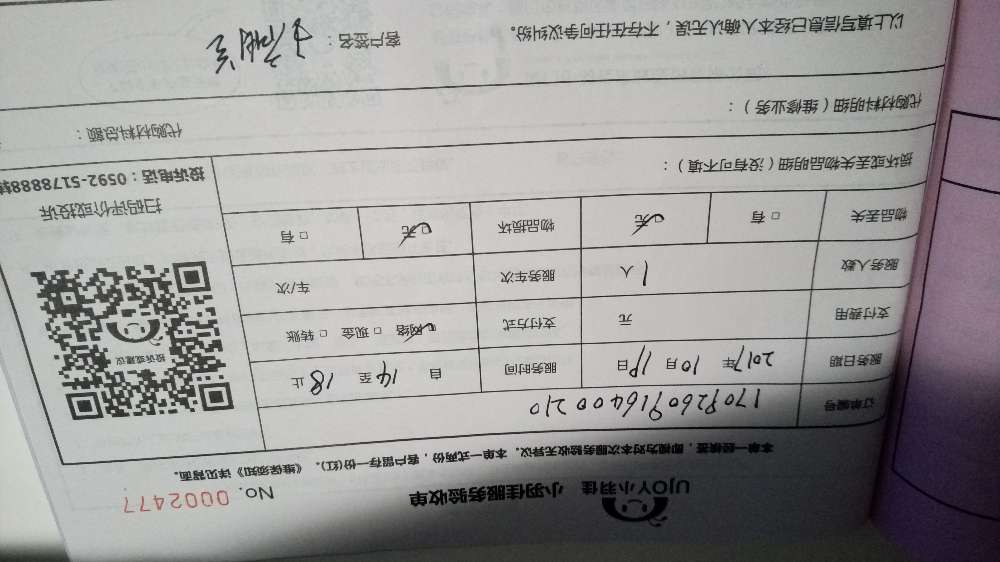 UJOY小羽佳 小羽佳服务验收单
No. 0002477
本单一经核签，即视为对本次服务验收无异议。本单一式两份，客户留存一份(红)。《维保须知》详见背面。
订单编号 170926091640 0210
服务日期 2017年 10月 19日 服务时间 自 14 至 18 止
支付费用 元 支付方式 网络 □ 现金 □ 转账
服务人数 1人 服务车次 车/次
物品丢失 □ 有 □无 物品损坏 □无 □ 有
投诉或建议
扫码评价或投诉
投诉电话：0592-5178888转
损坏或丢失物品明细（没有可不填）：
代购材料明细（维修业务）：
代购材料总额：
以上填写信息已经本人确认无误，不存在任何争议纠纷。 客户签名：